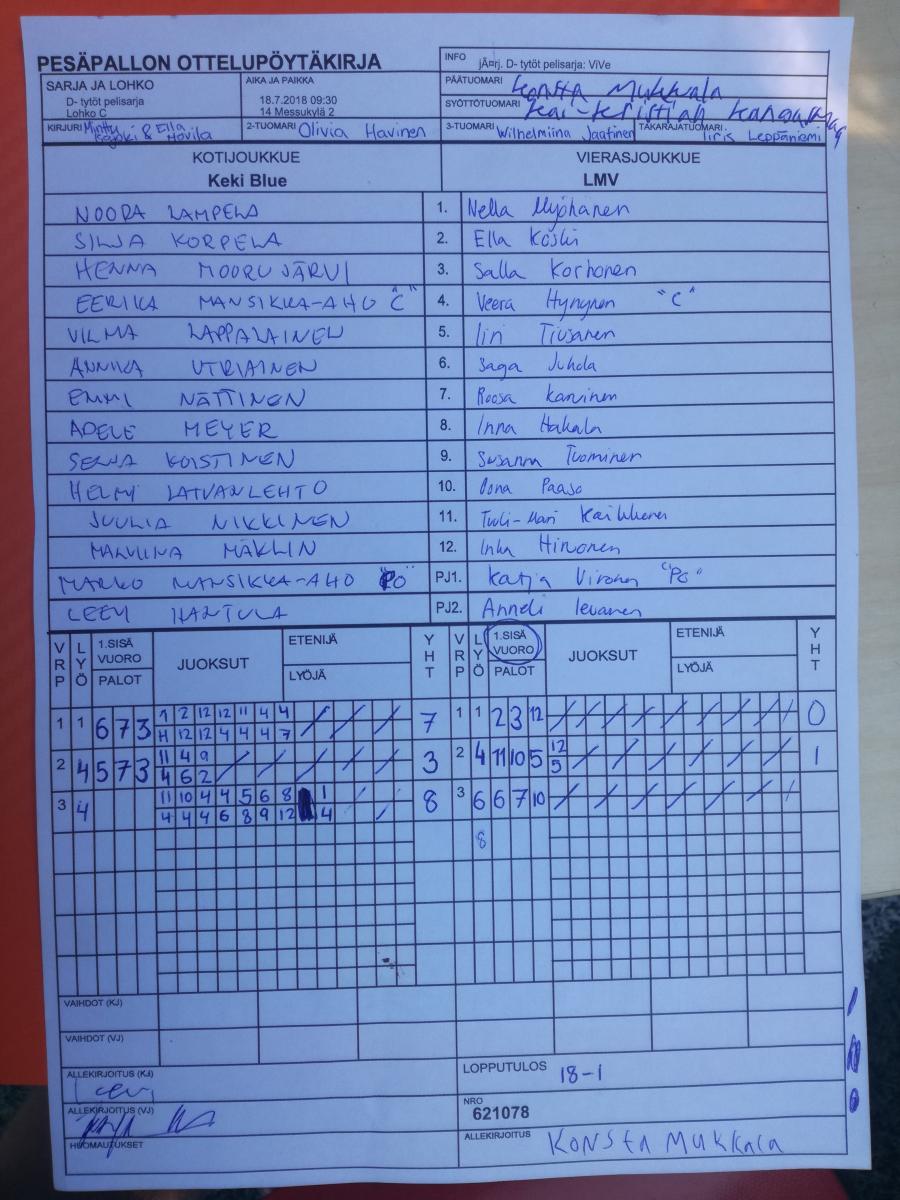 PESÄPALLON OTTELUPÖYTÄKIRJA
INFO jÃ¤rj. D- tytöt pelisarja: ViVe
SARJA JA LOHKO
D- tytöt pelisarja
Lohko C
AIKA JA PAIKKA
18.7.2018 09:30
14 Messukylä 2
PÄÄTUOMARI Konsta Mukkala
SYÖTTÖTUOMARI Kai-Kristian
KIRJURI Minttu & Ella
2-TUOMARI Olivia Havinen
3-TUOMARI Wilhelmiina Jaatinen
TAKARAJATUOMARI Iiris Leppäniemi
KOTIJOUKKUE VIERASJOUKKUE
Keki Blue LMV
NOORA LAMPELA 1. Nella Myöhänen
SILJA KORPELA 2. Ella Koski
HENNA MOORUJÄRVI 3. Salla Korhonen
EERIKA MANSIKKA-AHO "C" 4. Veera Hynynen "C"
VILMA LAPPALAINEN 5. Iiri Tiusanen
ANNIKA UTRIAINEN 6. Saga Juhola
EMMI NÄTTINEN 7. Roosa Karvinen
ADELE MEYER 8. Inna Hakala
SENJA KOISTINEN 9. Susanna Tuominen
HELMI LATVANLEHTO 10. Oona Paaso
JUULIA NIKKINEN 11. Tuuli-Mari Kaikkonen
MALVIINA MÄKLIN 12. Inka Hirvonen
MARKO MANSIKKA-AHO "PO" PJ1. Katja Vironen "PO"
LEENI HANTULA PJ2. Anneli Ievanen
VRP LYÖ 1.SISÄ VUORO PALOT JUOKSUT ETENIJÄ LYÖJÄ YHT VRP LYÖ 1.SISÄ VUORO PALOT JUOKSUT ETENIJÄ LYÖJÄ YHT
1 1 6 7 3 1 2 12 12 11 4 4 7 1 1 2 3 12 0
11 12 12 4 4 4 7
2 4 5 7 3 11 4 9 3 2 4 11 10 5 12 1
4 6 2 5
3 4 11 10 4 4 5 6 8 1 8 3 6 6 7 10
4 4 4 6 8 9 12 4
8
VAIHDOT (KJ)
VAIHDOT (VJ)
ALLEKIRJOITUS (KJ)
LOPPUTULOS 18-1
ALLEKIRJOITUS (VJ)
NRO
621078
HUOMAUTUKSET
ALLEKIRJOITUS KONSTA MUKKALA